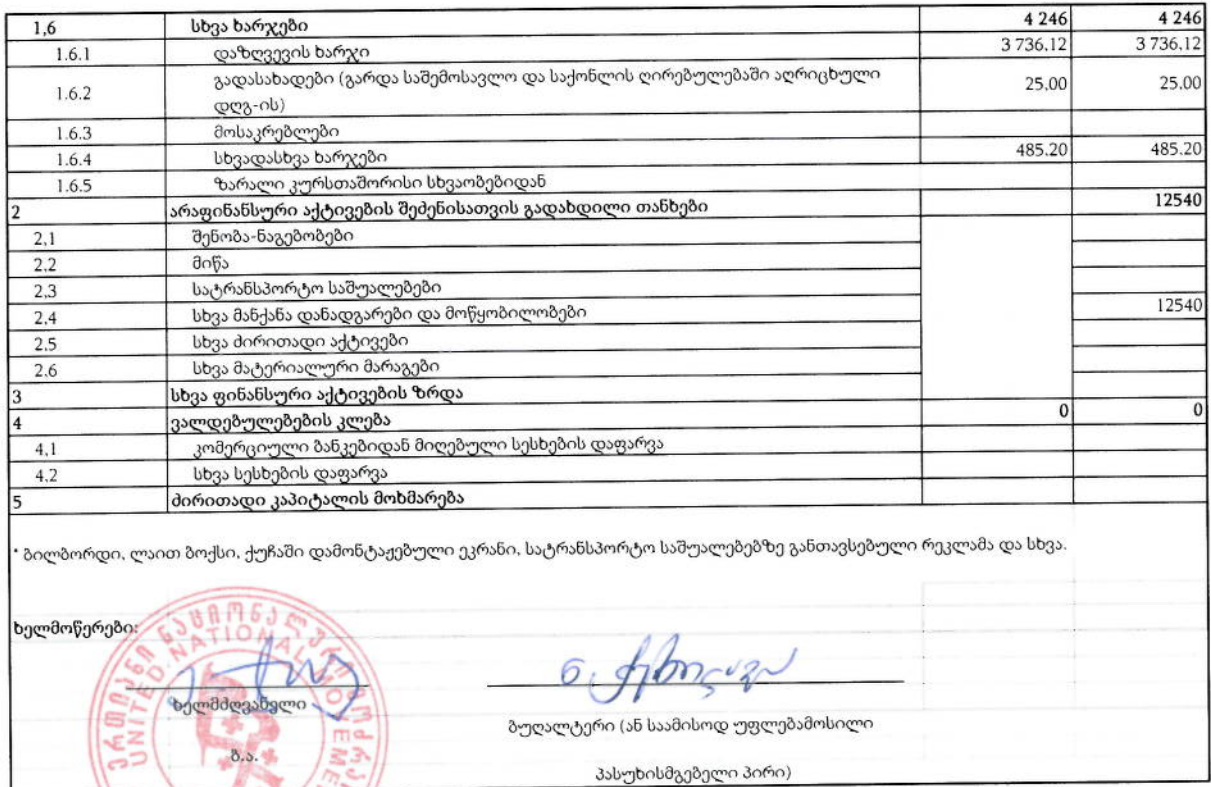 1,6 სხვა ხარჯები 4 246 4 246
1.6.1 დაზღვევის ხარჯი 3 736,12 3 736,12
გადასახადები (გარდა საშემოსავლო და საქონლის ღირებულებაში აღრიცხული
1.6.2 25.00 25.00
დღგ-ის)
1.6.3 მოსაკრებლები
1.6.4 სხვადასხვა ხარჯები 485.20 485.20
1.6.5 ზარალი კურსთაშორისი სხვაობებიდან
2 არაფინანსური აქტივების შეძენისათვის გადახდილი თანხები 12540
2,1 შენობა-ნაგებობები
2,2 მიწა
2,3 სატრანსპორტო საშუალებები
2,4 სხვა მანქანა დანადგარები და მოწყობილობები 12540
2,5 სხვა ძირითადი აქტივები
2,6 სხვა მატერიალური მარაგები
3 სხვა ფინანსური აქტივების ზრდა
4 ვალდებულებების კლება 0 0
4,1 კომერციული ბანკებიდან მიღებული სესხების დაფარვა
4,2 სხვა სესხების დაფარვა
5 ძირითადი კაპიტალის მოხმარება
* ბილბორდი, ლაით ბოქსი, ქუჩაში დამონტაჟებული ეკრანი, სატრანსპორტო საშუალებებზე განთავსებული რეკლამა და სხვა.
ხელმოწერები:
ერთიანი ნაციონალური მოძრა
UNITED NATIONAL MOVEME
ხელმძღვანელი
ბუღალტერი (ან საამისოდ უფლებამოსილი
ბ.ა.
პასუხისმგებელი პირი)